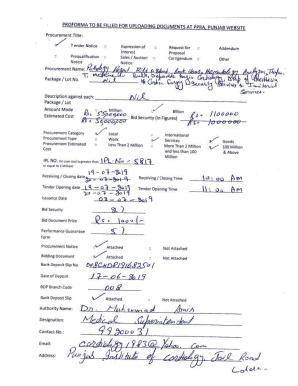 PROFORMA TO BE FILLED FOR UPLOADING DOCUMENTS AT PPRA, PUNJAB WEBSITE
Procurement Title:
Tender Notice Expression of Interest Request for Proposal Addendum
Prequalification Notice Sales / Auction Notice Corrigendum Other
Procurement Name:
Package / Lot No. Nil
Services.
Description against each Package / Lot Nil
Amount Million Billion
Estimated Cost: Bid Security (In Figures)
Procurement Category Local International
Procurement Type Work Services Goods
Procurement Estimated Cost Less Than 2 Million More Than 2 Million and less than 100 Million 100 Million & Above
IPL No - 5817
19-07-2019
Receiving / Closing date Receiving / Closing Time 10:00 AM
Tender Opening date Tender Opening Time 11:00 AM
Issuance Date
Bid Security 2%
Bid Document Price Rs. 1000/-
Performance Guarantee Form 5%
Procurement Notice Attached Not Attached
Bidding Document Attached Not Attached
Bank Deposit Slip No.
Date of Deposit 17-06-2019
BOP Branch Code 008
Bank Deposit Slip Attached Not Attached
Authority Name: Dr. Muhammad Amin
Designation: Medical Superintendent
Contact No.: 99200031
Email: cardiology1983@Yahoo.com
Address: Punjab Institute of cardiology Jail Road
Lahore.